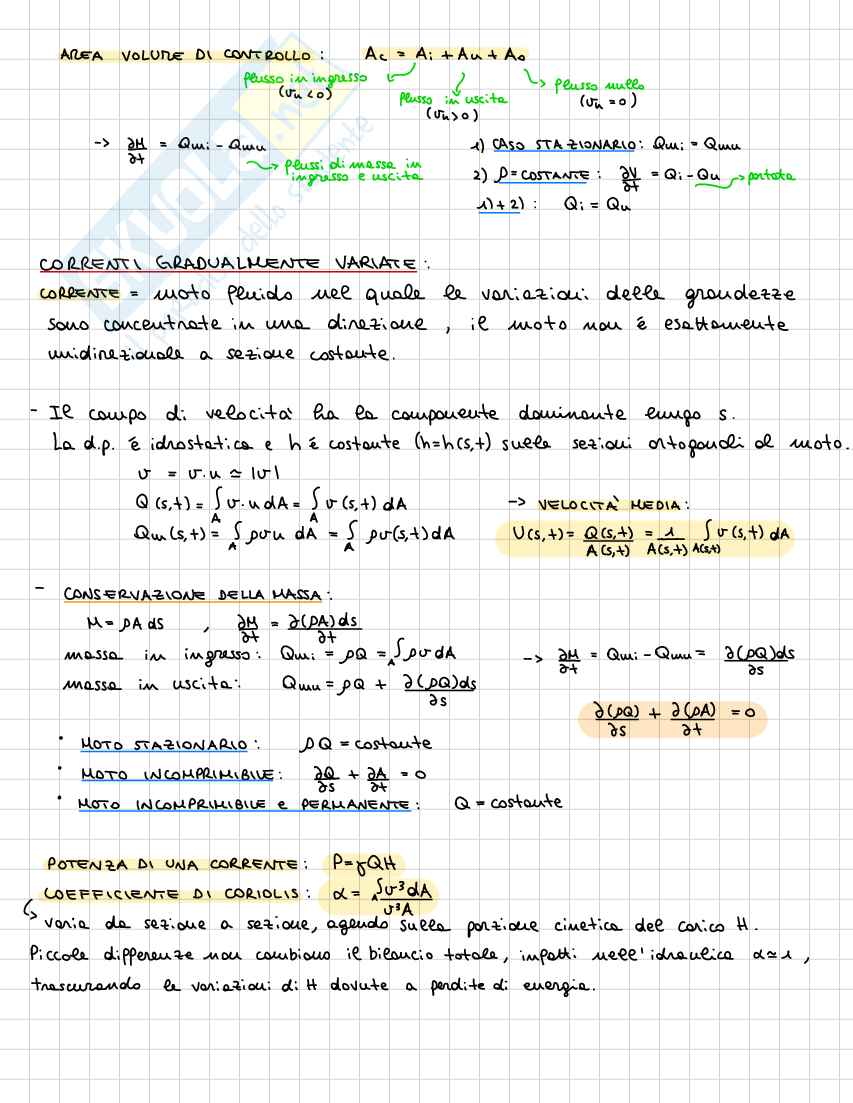 AREA VOLUME DI CONTROLLO: Ac = Ai + Au + Ao
flusso in ingresso (vn<0)
flusso in uscita (vn>0)
flusso nullo (vn=0)
-> ∂M/∂t = Qmi - Qmu
-> flussi di massa in ingresso e uscita
1) CASO STAZIONARIO: Qmi = Qmu
2) ρ=COSTANTE: ∂V/∂t = Qi - Qu -> portata
1)+2): Qi = Qu
SKUOLA.net
dello studente
CORRENTI GRADUALMENTE VARIATE:
CORRENTE = moto fluido nel quale le variazioni delle grandezze
sono concentrate in una direzione, il moto non è esattamente
unidirezionale a sezione costante.
- Il campo di velocità ha la componente dominante lungo s.
La d.p. è idrostatica e h è costante (h=h(s,t) sulle sezioni ortogonali al moto.
v = v·n ≃ |v|
Q(s,t) = ∫A v·n dA = ∫A v(s,t) dA
-> VELOCITÀ MEDIA:
Qm(s,t) = ∫A ρvn dA = ∫A ρv(s,t) dA
U(s,t) = Q(s,t)/A(s,t) = 1/A(s,t) ∫A(s,t) v(s,t) dA
- CONSERVAZIONE DELLA MASSA:
M = ρA ds , ∂M/∂t = ∂(ρA)ds/∂t
massa in ingresso: Qmi = ρQ = ∫A ρv dA
massa in uscita: Qmu = ρQ + ∂(ρQ)ds/∂s
-> ∂M/∂t = Qmi - Qmu = ∂(ρQ)ds/∂s
∂(ρQ)/∂s + ∂(ρA)/∂t = 0
· MOTO STAZIONARIO: ρQ = costante
· MOTO INCOMPRIMIBILE: ∂Q/∂s + ∂A/∂t = 0
· MOTO INCOMPRIMIBILE e PERMANENTE: Q = costante
POTENZA DI UNA CORRENTE: P=γQH
COEFFICIENTE DI CORIOLIS: α = ∫A v³dA / v³A
↳ varia da sezione a sezione, agendo sulla porzione cinetica del carico H.
Piccole differenze non cambiano il bilancio totale, infatti nell'idraulica α≃1,
trascurando le variazioni di H dovute a perdite di energia.